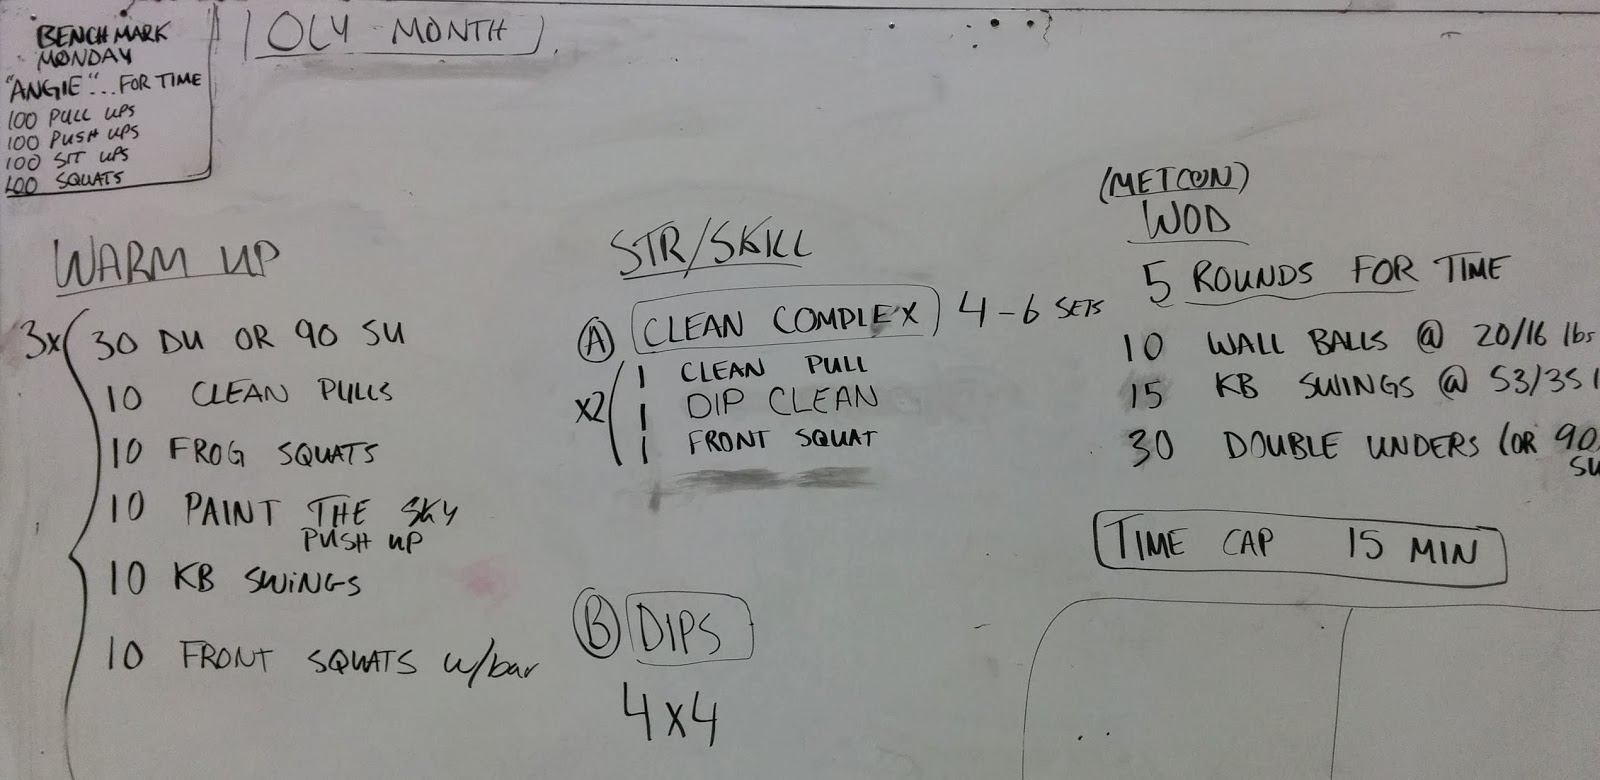 BENCHMARK
MONDAY
"ANGIE"...FOR TIME
100 PULL UPS
100 PUSH UPS
100 SIT UPS
100 SQUATS
OLY MONTH
WARM UP
3x
30 DU OR 90 SU
10 CLEAN PULLS
10 FROG SQUATS
10 PAINT THE SKY
PUSH UP
10 KB SWINGS
10 FRONT SQUATS w/bar
STR/SKILL
A CLEAN COMPLEX 4-6 SETS
x2
1 CLEAN PULL
1 DIP CLEAN
1 FRONT SQUAT
B DIPS
4x4
(METCON)
WOD
5 ROUNDS FOR TIME
10 WALL BALLS @ 20/16 lbs
15 KB SWINGS @ 53/35 l
30 DOUBLE UNDERS (OR 90
SU
TIME CAP 15 MIN